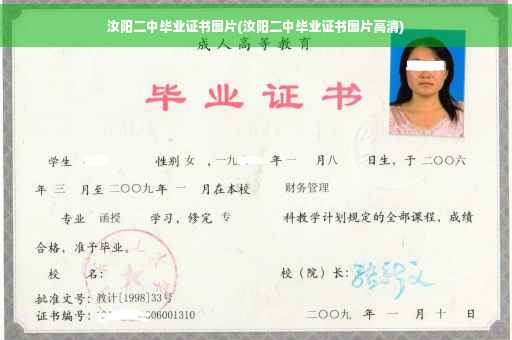 汝阳二中毕业证书图片(汝阳二中毕业证书图片高清)
成人高等教育
毕业证书
学生 性别 女 ，一九 年 一 月八 日生，于 二〇〇六
年 三 月至 二〇〇九年 一 月在本校 财务管理
专业 函授 学习，修完 专 科教学计划规定的全部课程，成绩
合格，准予毕业。
校 名： 校（院）长：
批准文号：教计[1998]33号
证书编号： 6006001310 二〇〇九 年 一 月 十 日